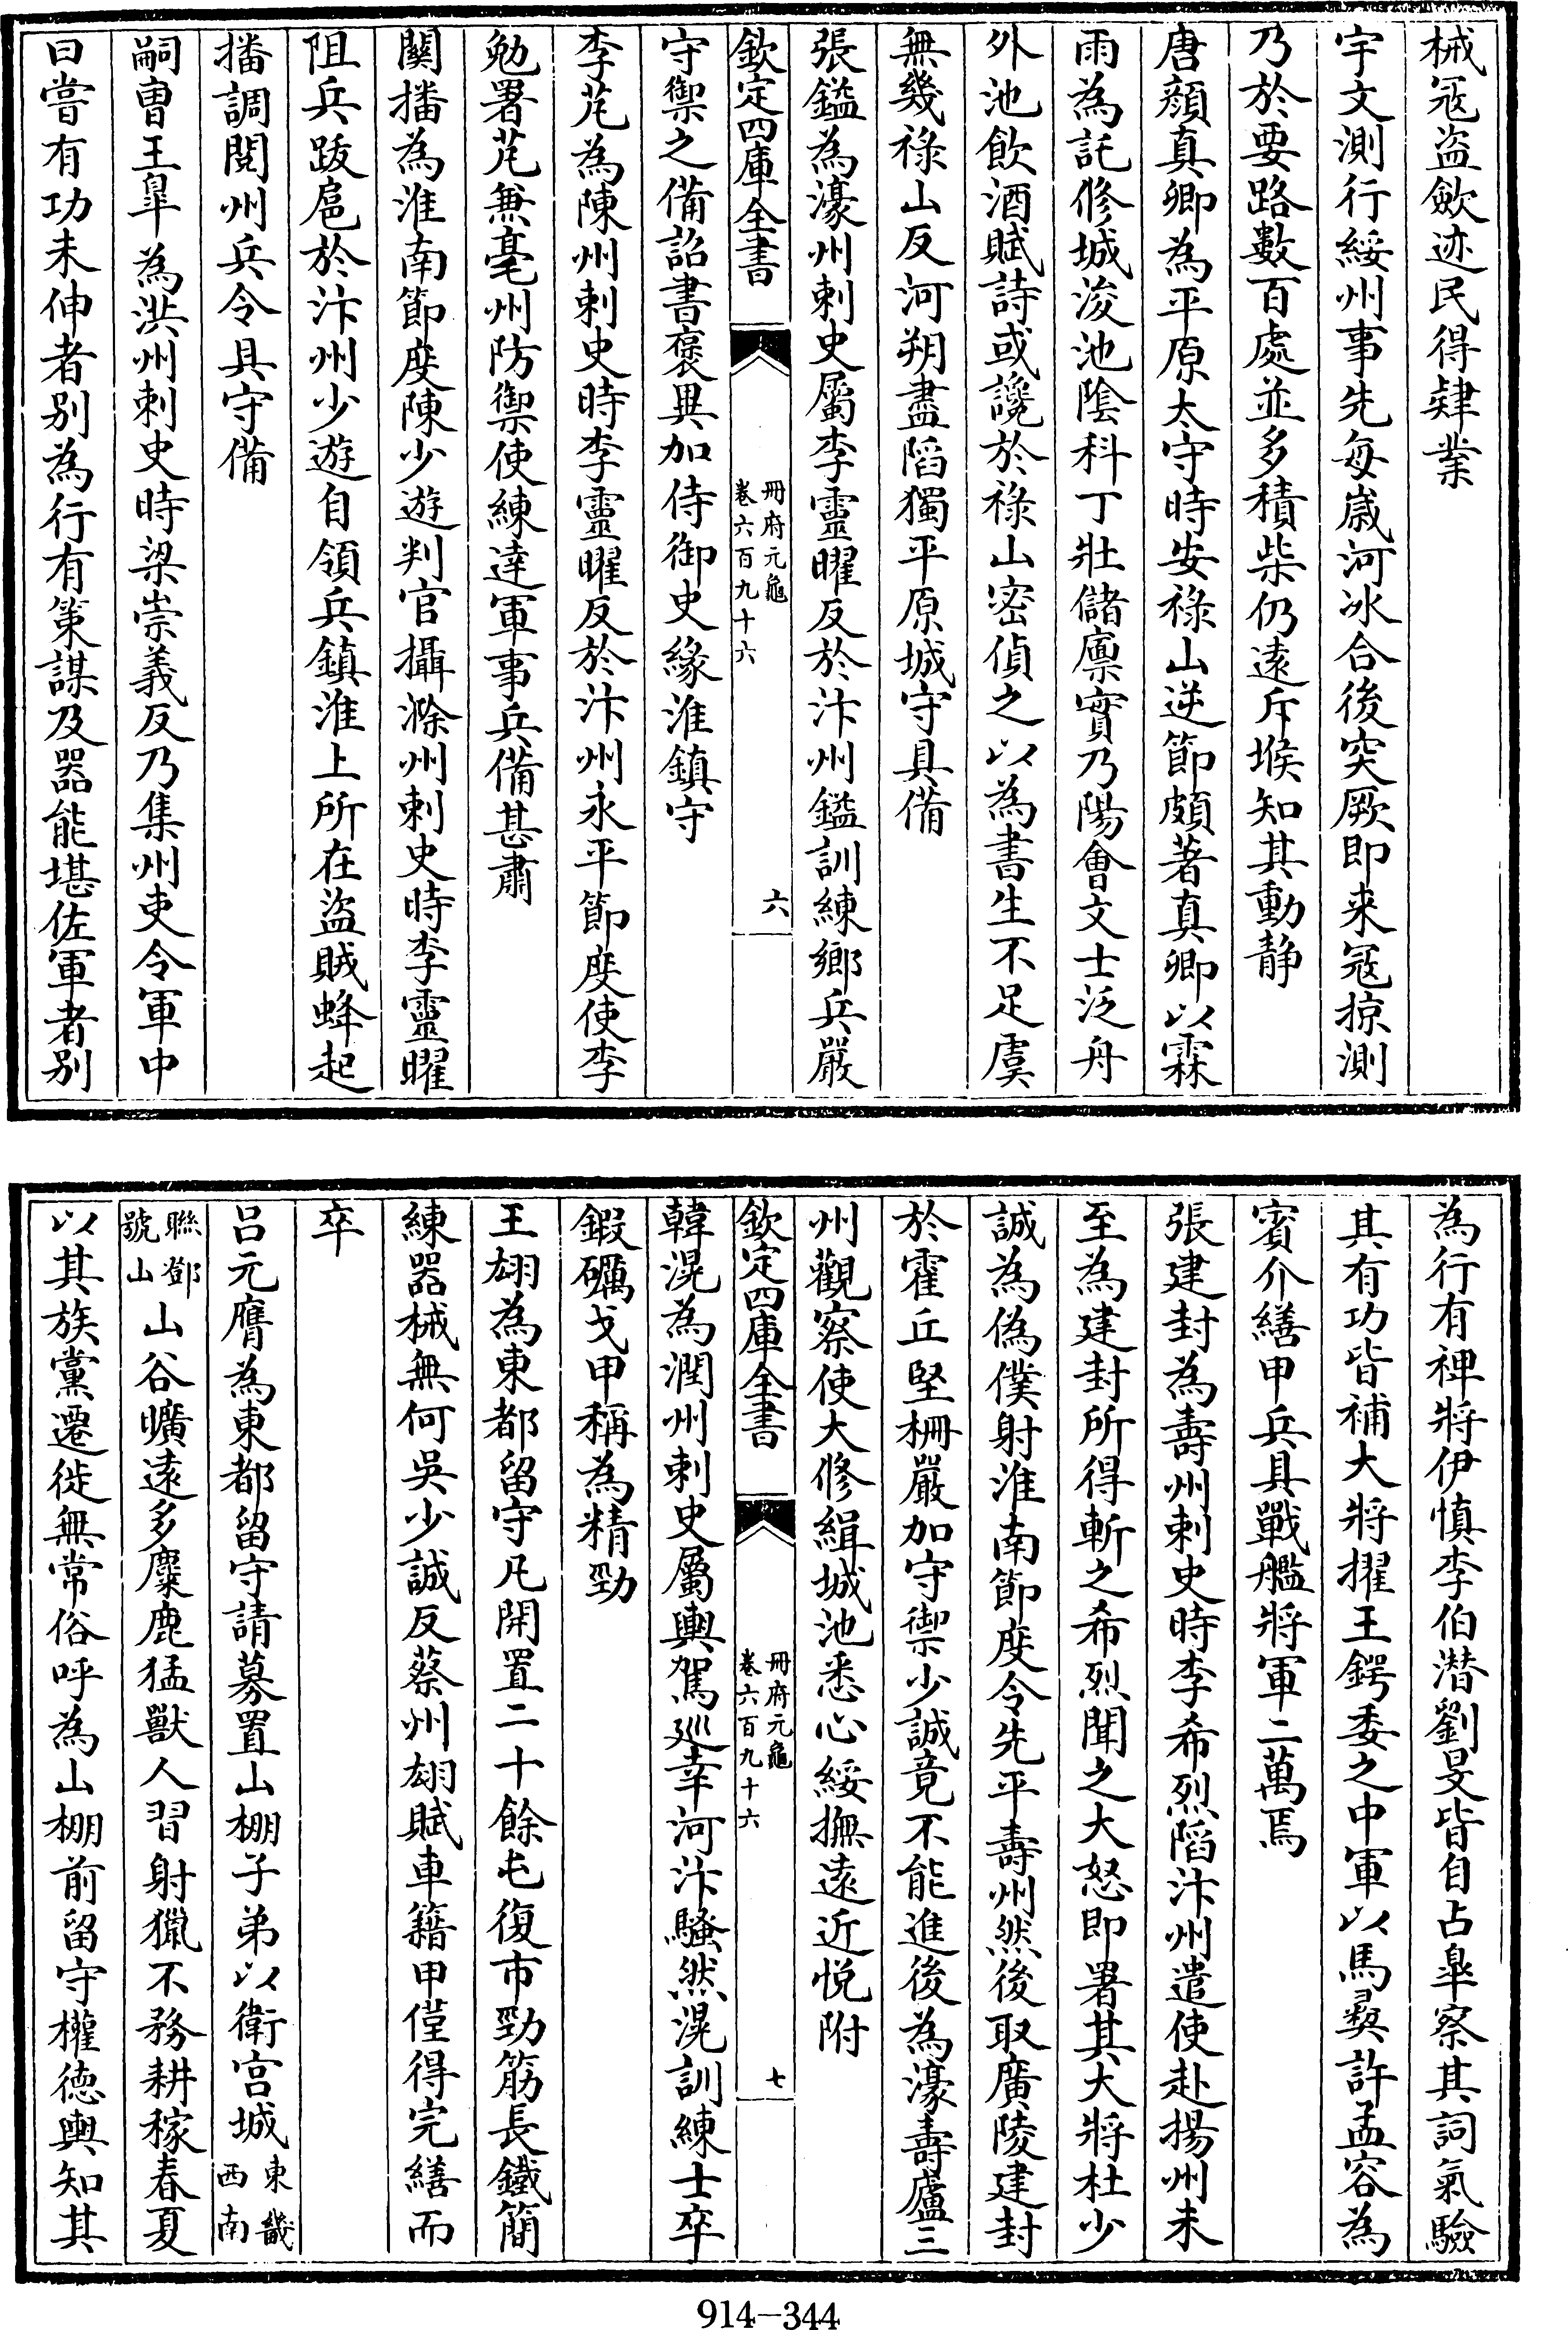 械冦盗歛迹民得肄業
宇文測行綏州事先每嵗河冰合後突厥即来冦掠測
乃於要路數百處並多積柴仍遠斥堠知其動静
唐顔真卿為平原太守時安祿山逆節頗著真卿以霖
雨為託修城浚池隂科丁壯儲廪實乃陽會文士泛舟
外池飲酒賦詩或讒於祿山密偵之以為書生不足虞
無幾祿山反河朔盡䧟獨平原城守具備
張鎰為濠州刺史屬李靈曜反於汴州鎰訓練鄉兵嚴
欽定四庫全書
冊府元龜
卷六百九十六
六
守禦之備詔書褒異加侍御史縁淮鎮守
李芃為陳州刺史時李靈曜反於汴州永平節度使李
勉署芃兼亳州防禦使練達軍事兵備甚肅
關播為淮南節度陳少遊判官攝滁州刺史時李靈曜
阻兵跋扈於汴州少遊自領兵鎮淮上所在盜賊蜂起
播調閲州兵令具守備
嗣曺王臯為洪州刺史時梁崇義反乃集州吏令軍中
曰嘗有功未伸者别為行有策謀及器能堪佐軍者别
為行有裨將伊慎李伯潜劉旻皆自占臯察其詞氣驗
其有功皆補大將擢王鍔委之中軍以馬彛許孟容為
賓介繕甲兵具戰艦將軍二萬焉
張建封為壽州刺史時李希烈䧟汴州遣使赴揚州未
至為建封所得斬之希烈聞之大怒即署其大將杜少
誠為偽僕射淮南節度令先平壽州然後取廣陵建封
於霍丘堅柵嚴加守禦少誠竟不能進後為濠壽廬三
州觀察使大修緝城池悉心綏撫遠近悦附
欽定四庫全書
冊府元龜
卷六百九十六
七
韓滉為潤州刺史屬輿駕巡幸河汴騷然滉訓練士卒
鍜礪戈甲稱為精勁
王翃為東都留守凡開置二十餘屯復市勁筋長鐵簡
練器械無何吳少誠反蔡州翃賦車籍甲僅得完繕而
卒
吕元膺為東都留守請募置山棚子弟以衛宫城東畿西南
聯鄧號山山谷曠遠多麋鹿猛獸人習射獵不務耕稼春夏
以其族黨遷徙無常俗呼為山棚前留守權徳輿知其
914-344